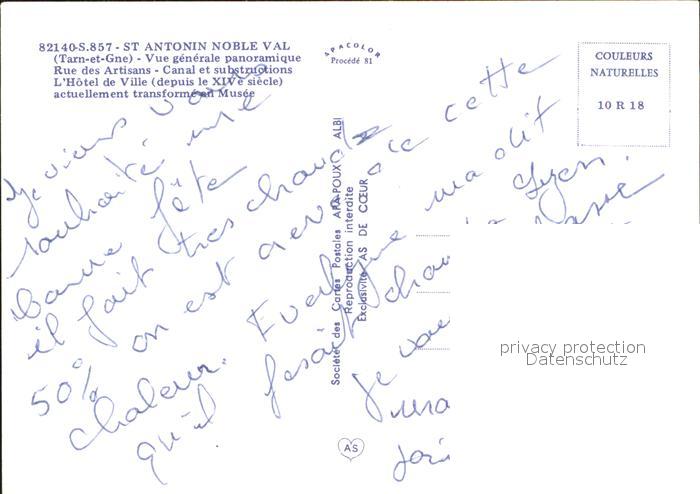 82140-S.857 - ST ANTONIN NOBLE VAL
(Tarn-et-Gne) - Vue générale panoramique
Rue des Artisans - Canal et substructions
L'Hôtel de Ville (depuis le XIVe siècle)
actuellement transformé en Musée
APACOLOR
Procédé 81
COULEURS
NATURELLES
10 R 18
Société des Cartes Postales APA-POUX ALBI
Reproduction interdite
Exclusivité AS DE CŒUR
AS
Je viens vous
souhaité une
bonne fête
il fait très chaud
on est avec cette
50%
chaleur. Evelyne ma dit
qu'il fesait chau Lyon.
je
privacy protection
Datenschutz